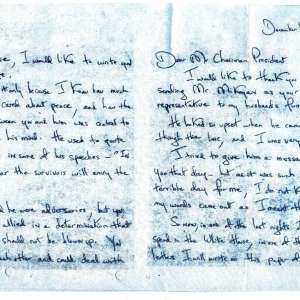 se, I would like to write you
e.
only because I know how much
cared about peace, and how the
tween you and him was central to
his mind. He used to quote
in some of his speeches - "In
r the survivors will envy the
d he were adversaries, but you
allied in a determination that
should not be blown up. You
other and could deal with
Decembe
Dear Mr. Chairman President
I would like to thank you
sending Mr. Mikoyan as your
representative to my husband's fu
He looked so upset when he came
through the line, and I was very
I tried to give him a message
you that day - but as it was such
terrible day for me, I do not k
my words came out as I meant the
So now, in one of the last nights I
spend in the White House, in one of the
letters I will write on this paper at